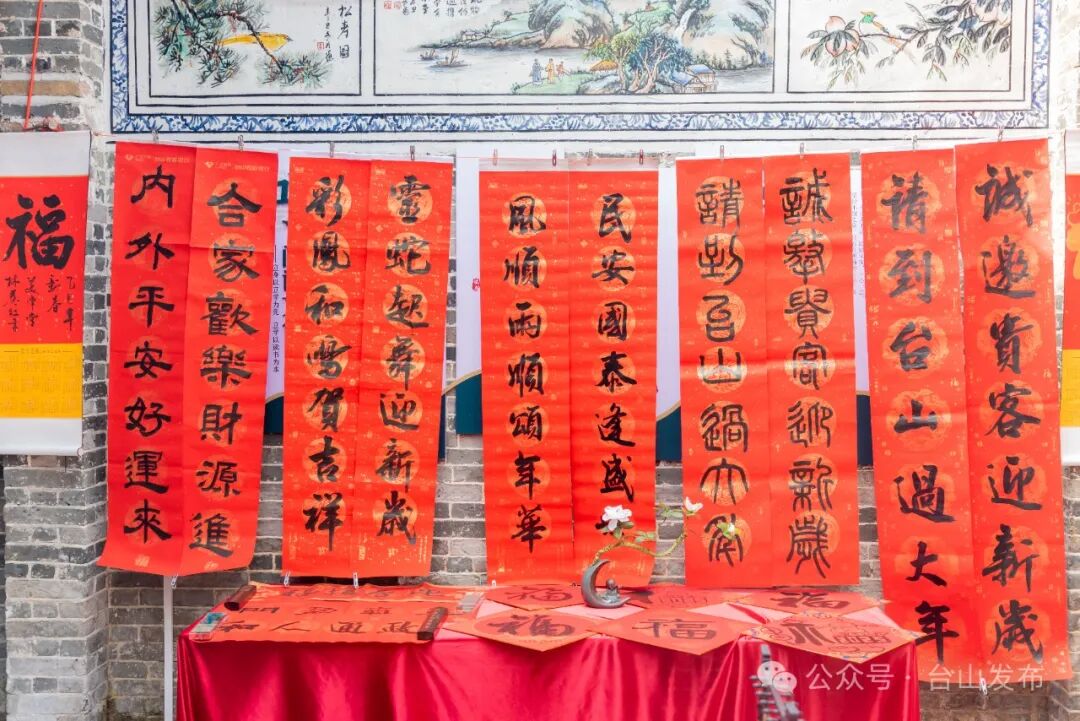 誠邀貴客迎新歲
请到台山過大年
誠邀貴客迎新歲
請到台山過大年
民安國泰逢盛
風順雨順頌年華
靈蛇起舞迎新歲
彩鳳和鳴賀吉祥
合家歡樂財源進
内外平安好運來
福
乙巳年
新春
福
福
福
福
公众号 · 台山发布